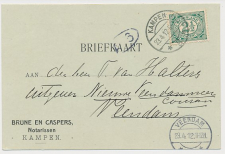 KAMPEN
BRIEFKAART
AAN Den Heer T. van Halteren
Uitgever Nieuwe Veendammer
Courant
Veendam
BRUNE EN CASPERS,
Notarissen
KAMPEN.
VEENDAM